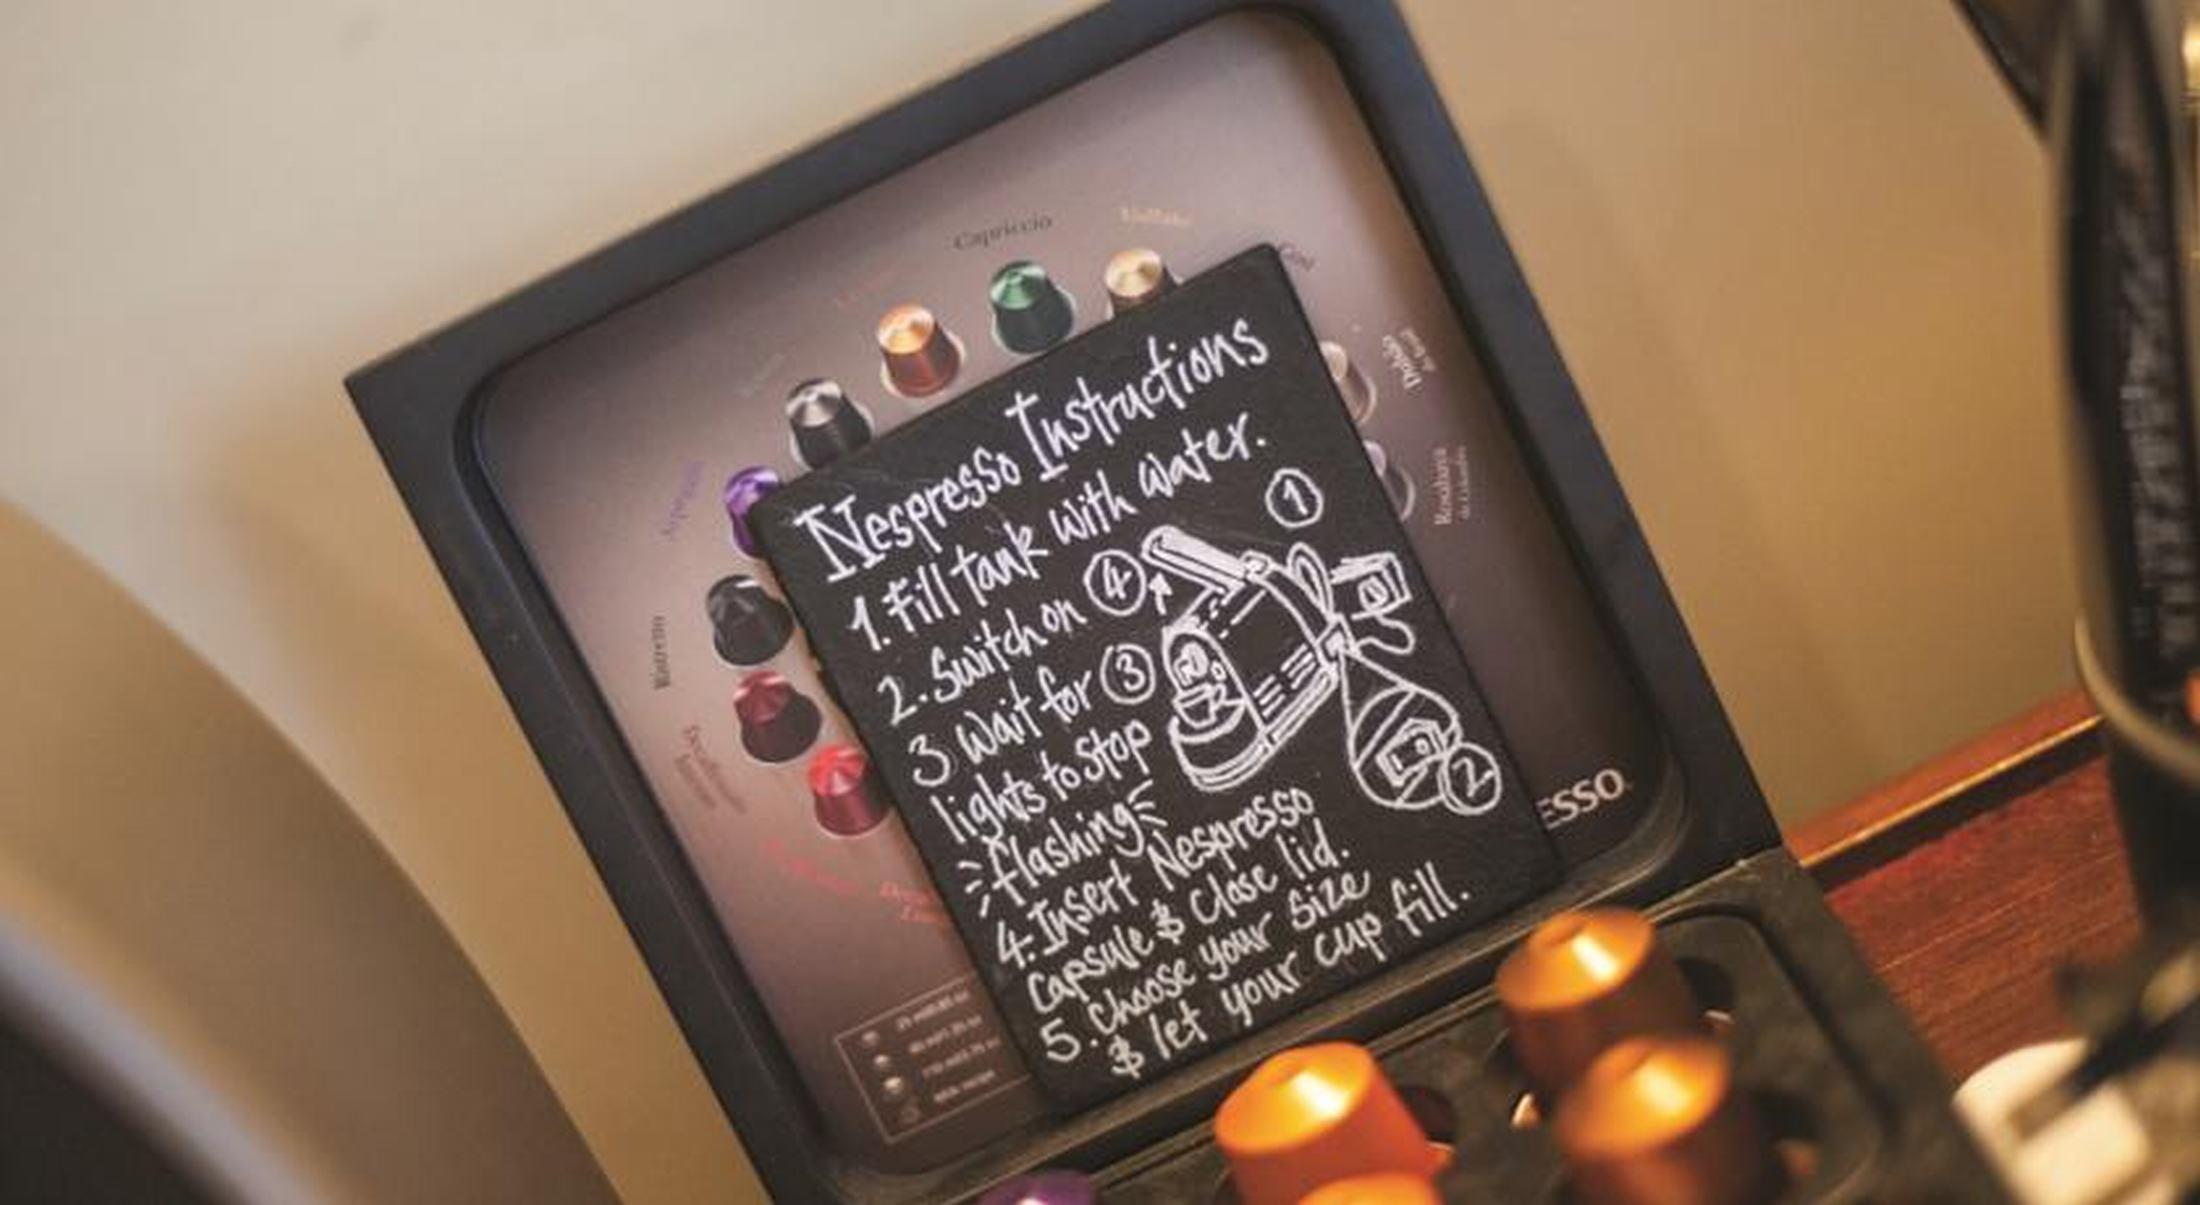 Capriccio
Volluto
Nespresso Instructions
1. Fill tank with water.
1
2. Switch on
4
3 Wait for
3
lights to stop
flashing
2
4. Insert Nespresso
Capsule & Close lid.
5. Choose your Size
& let your cup fill.
Ristretto
Rosabaya
de Colombia
ESSO.